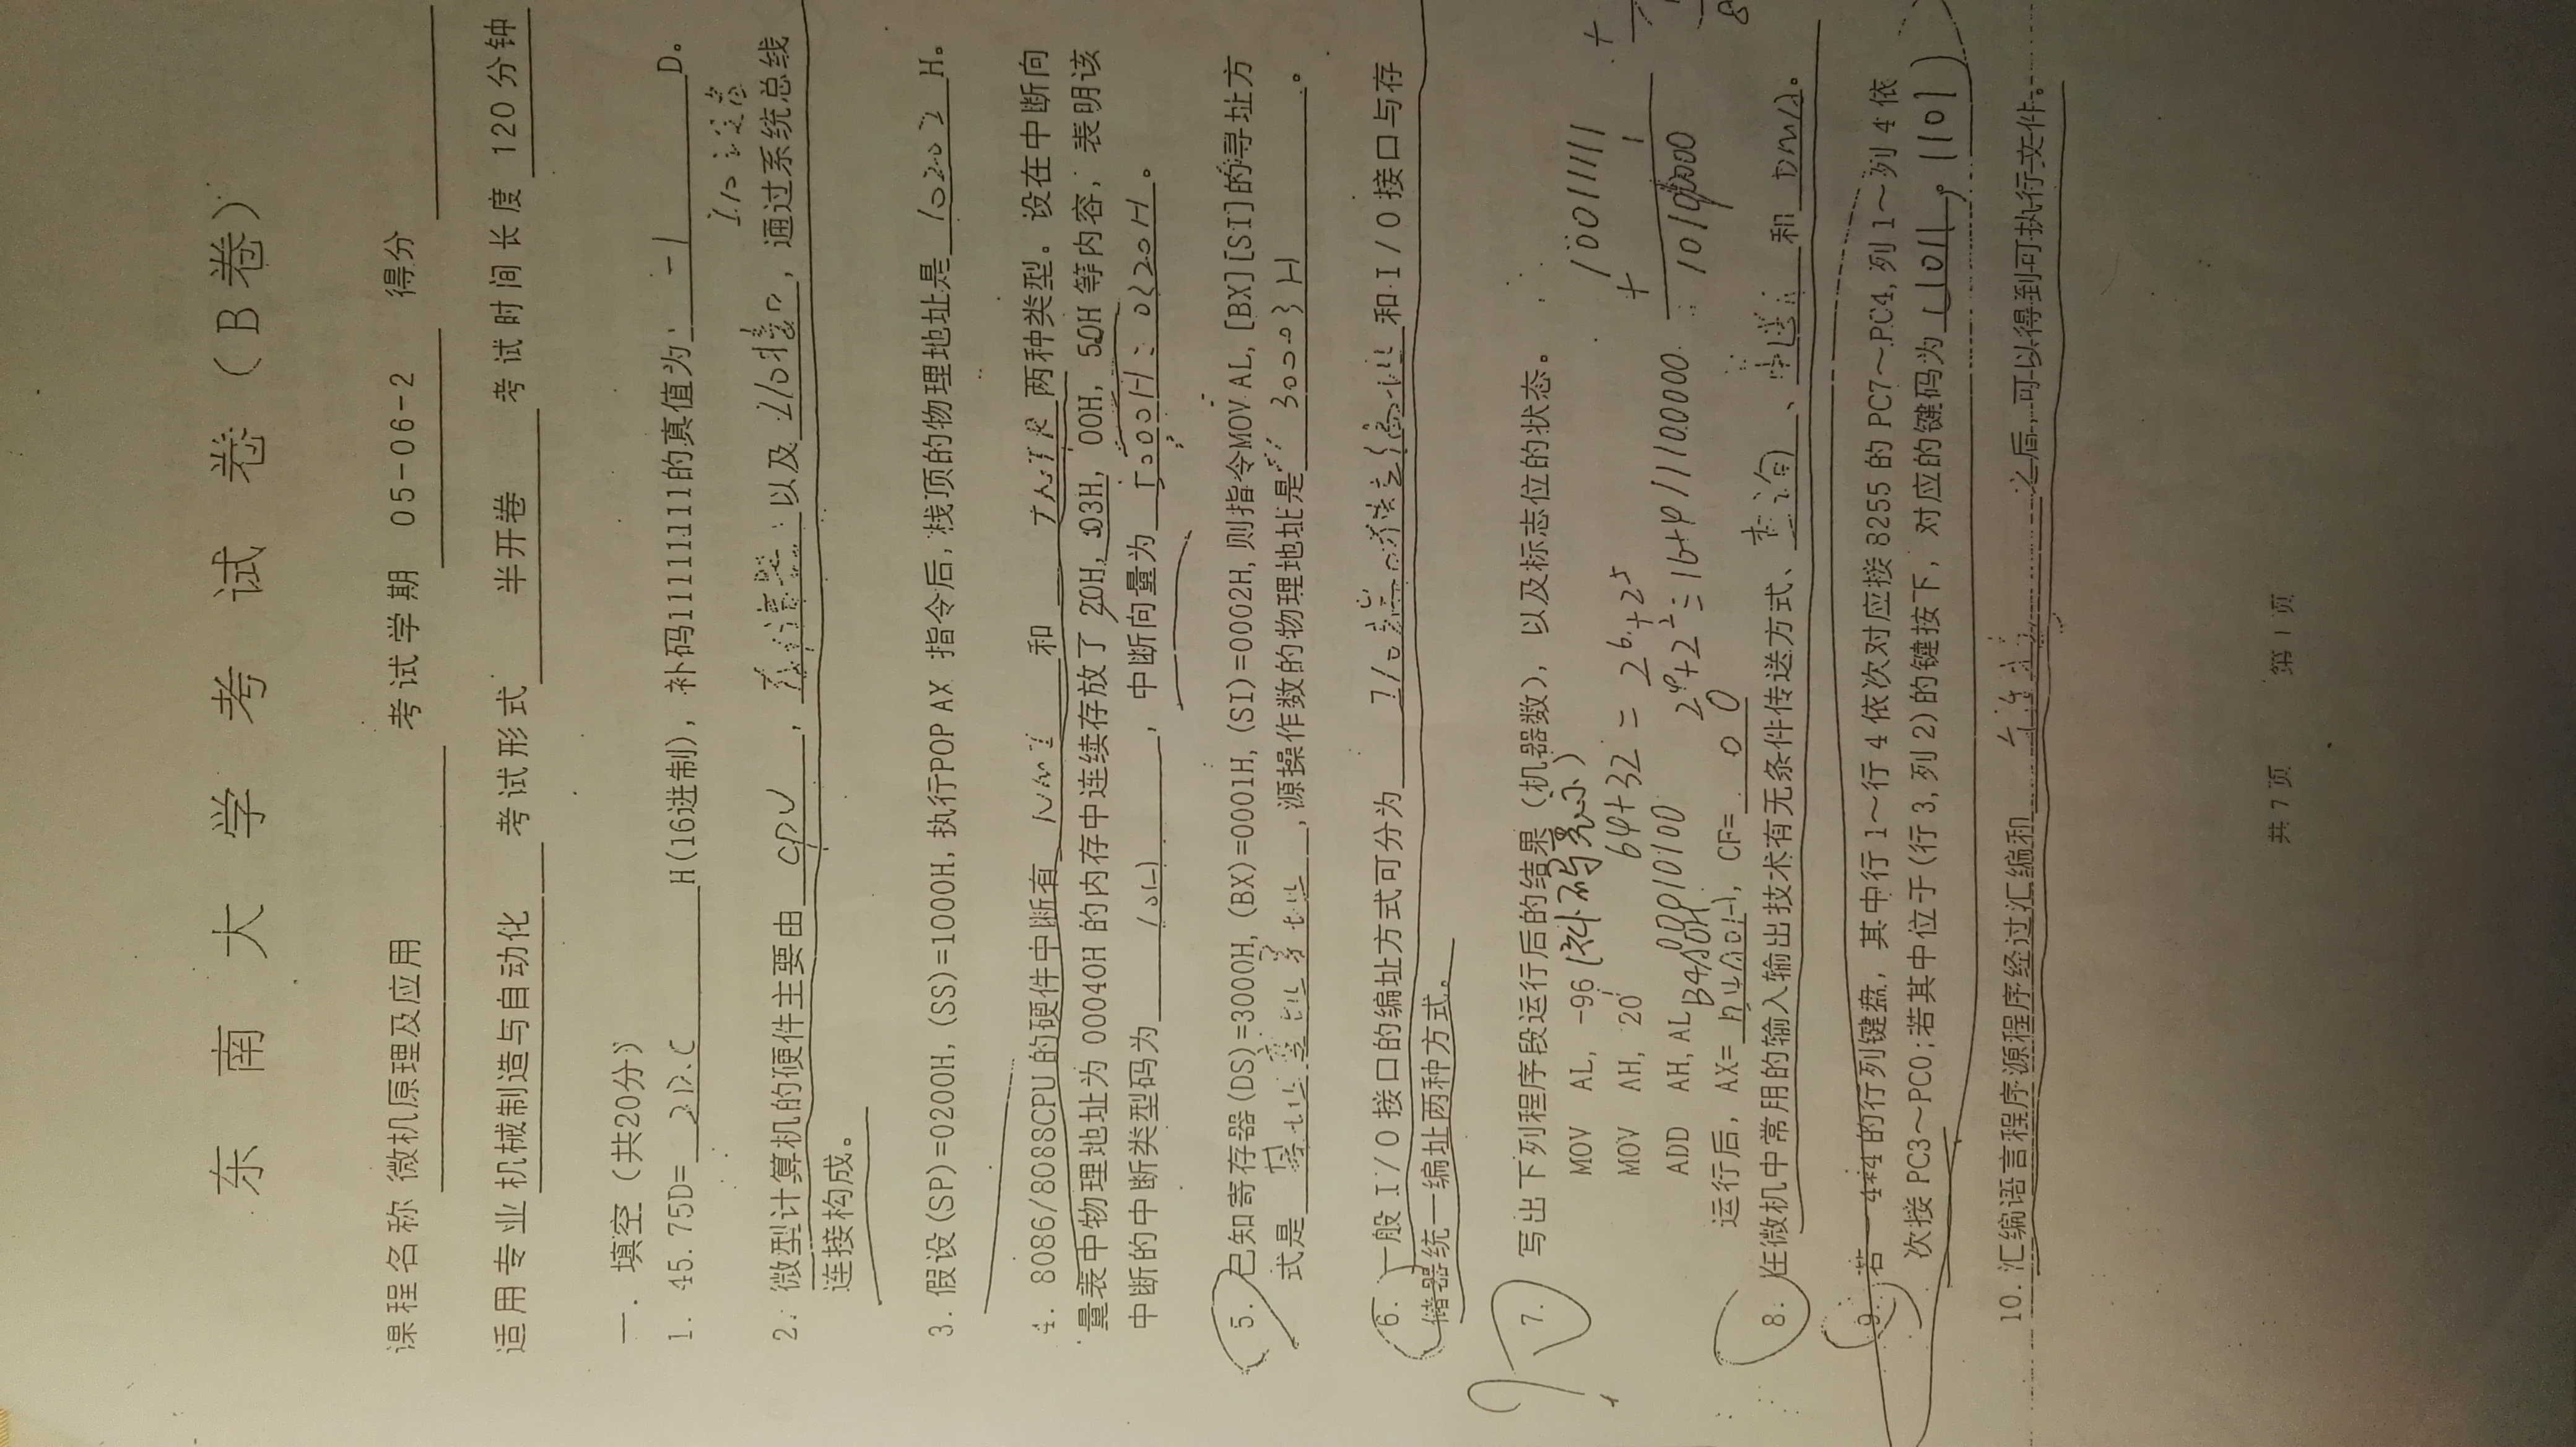 东 南 大 学 考 试 卷 （B卷）
课程名称 微机原理及应用 考试学期 05-06-2 得分
适用专业 机械制造与自动化 考试形式 半开卷 考试时间长度 120分钟
一. 填空（共20分）
1. 45.75D= 2D.C H(16进制)，补码11111111的真值为 -1 D。
2. 微型计算机的硬件主要由 CPU ， 以及 I/O接口 ，通过系统总线
连接构成。
3. 假设(SP)=0200H,(SS)=1000H,执行POP AX 指令后,栈顶的物理地址是 10202 H。
4. 8086/8088CPU的硬件中断有 NMI 和 INTR 两种类型。设在中断向
量表中物理地址为 00040H 的内存中连续存放了 20H, 03H, 00H, 50H 等内容，表明该
中断的中断类型码为 10H ，中断向量为 500H: 0320H 。
5. 已知寄存器(DS)=3000H, (BX)=0001H, (SI)=0002H,则指令MOV AL, [BX][SI]的寻址方
式是 ,源操作数的物理地址是 30003H 。
6. 一般 I/O 接口的编址方式可分为 和 I/O 接口与存
储器统一编址两种方式。
7. 写出下列程序段运行后的结果（机器数），以及标志位的状态。
MOV AL, -96 (补码表示)
MOV AH, 20 64+32=
ADD AH, AL
运行后，AX= B4A0H , CF= 0
8. 在微机中常用的输入输出技术有无条件传送方式、 查询 、 中断 和 DMA 。
9. 若一 4*4的行列键盘，其中行 1～行 4 依次对应接 8255 的 PC7～PC4,列 1～列 4 依
次接 PC3～PC0;若其中位于(行 3,列 2)的键按下，对应的键码为
10. 汇编语言程序源程序经过汇编和 之后,可以得到可执行文件。
共 7 页 第 1 页